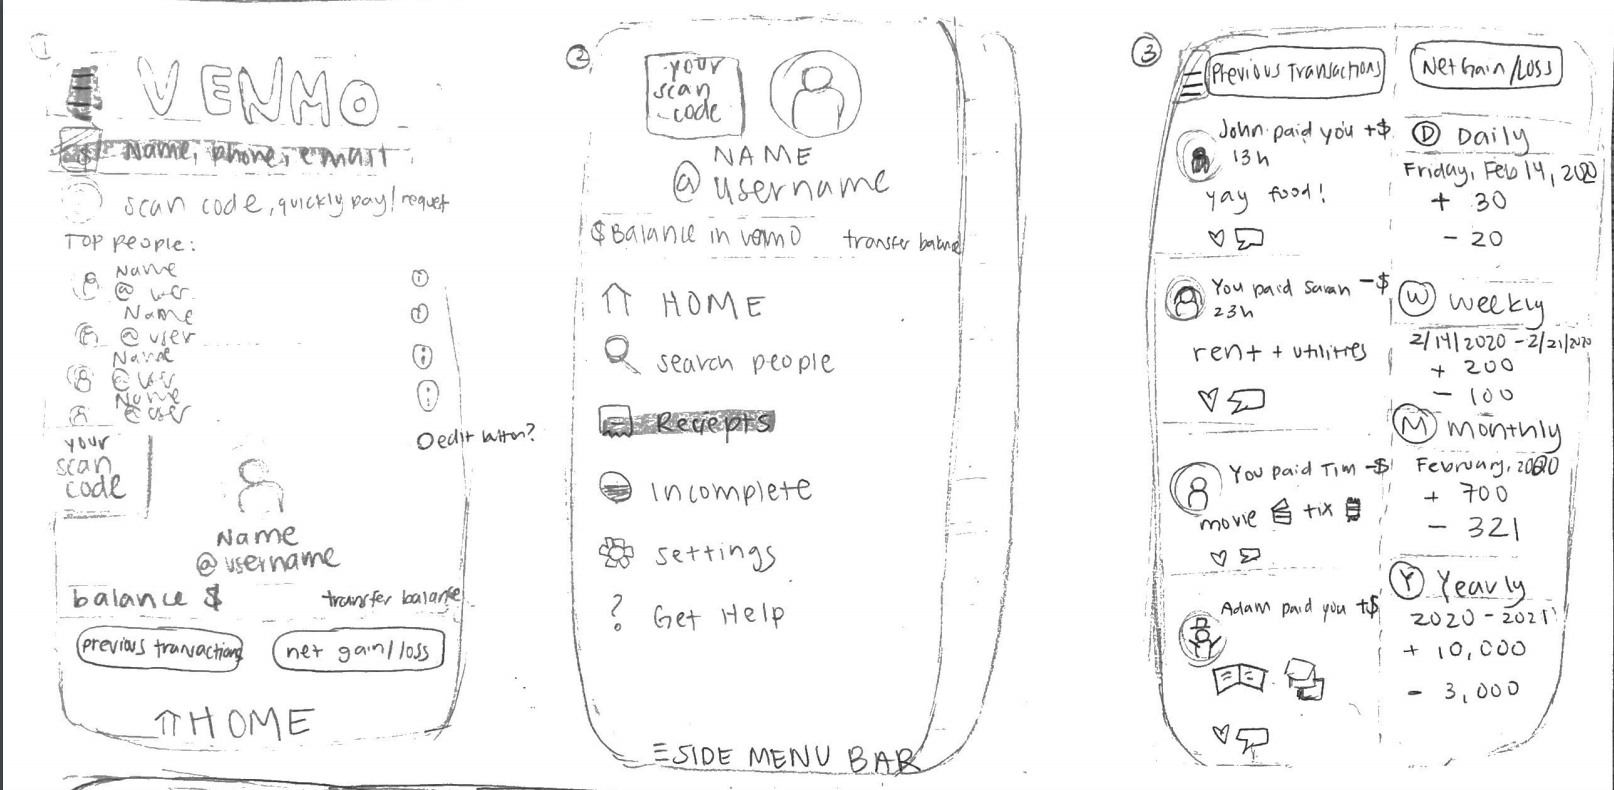 1
VENMO
$ Name, phone, email
scan code, quickly pay/request
TOP people:
Name
@ user
Name
@ user
Name
@ user
Name
@ user
0 edit button?
your
scan
code
Name
@username
balance $ transfer balance
previous transactions net gain/loss
HOME
2
your
scan
code
NAME
@username
$Balance in venmo transfer balance
HOME
search people
Reciepts
Incomplete
settings
? Get Help
SIDE MENU BAR
3
Previous Transactions
John paid you +$
13h
yay food!
You paid Sarah -$
23h
rent + utilities
You paid Tim -$
movie tix
Adam paid you +$
Net Gain/Loss
D Daily
Friday, Feb 14, 2020
+ 30
- 20
W Weekly
2/14/2020 - 2/21/2020
+ 200
- 100
M Monthly
February, 2020
+ 700
- 321
Y Yearly
2020 - 2021
+ 10,000
- 3,000